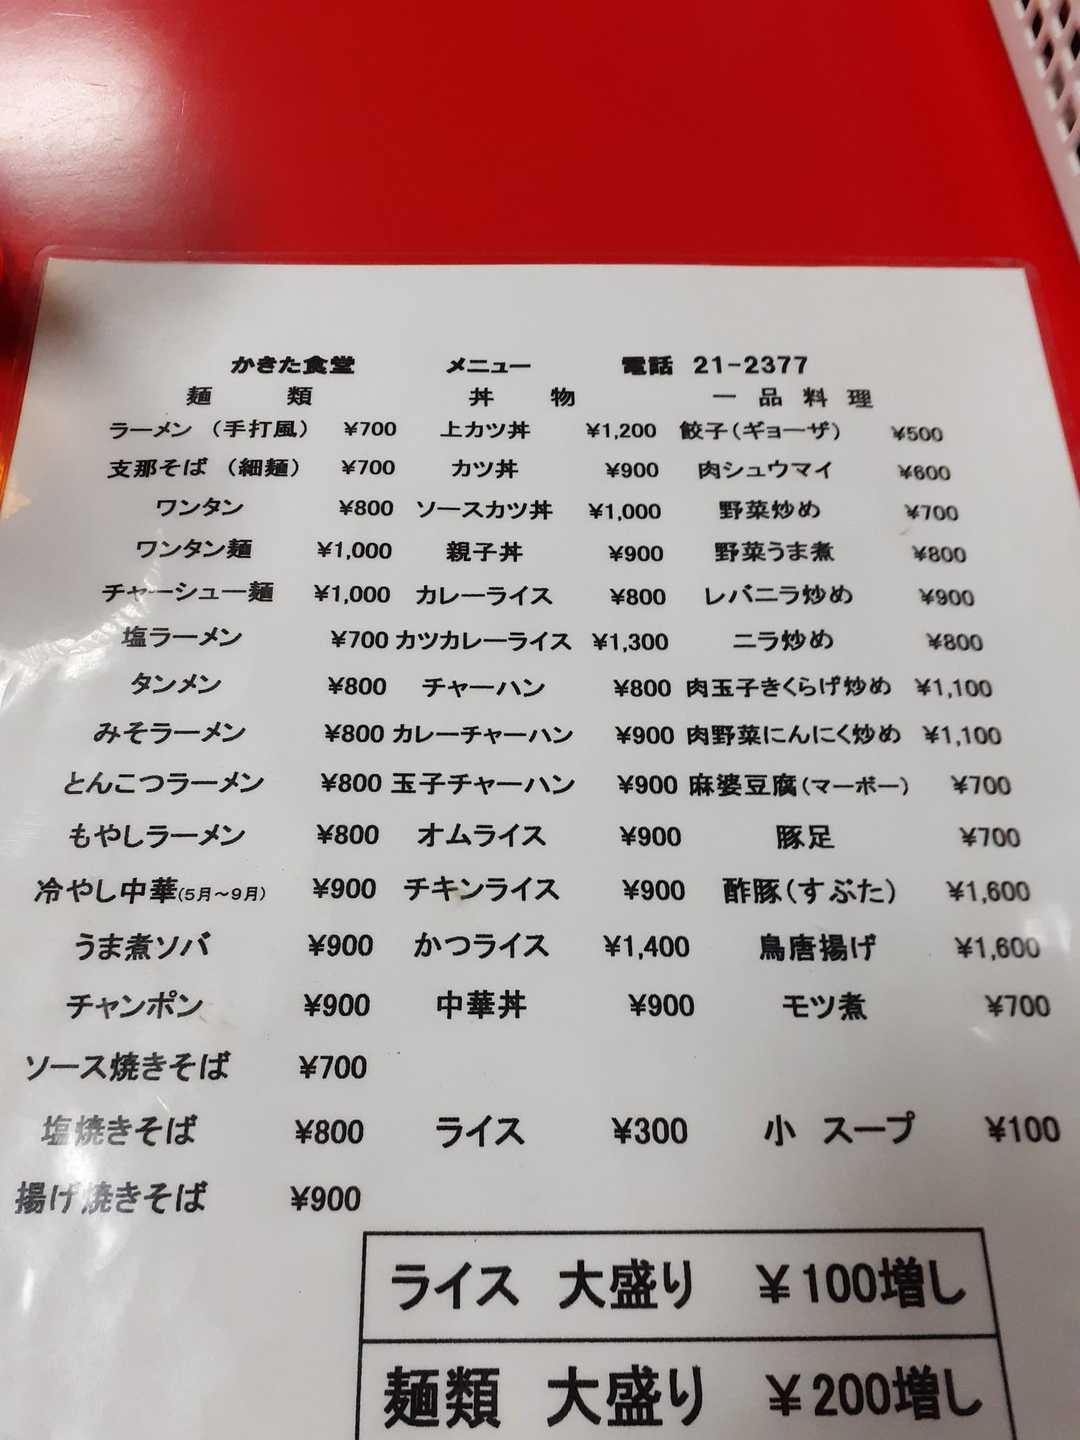 かきた食堂 メニュー 電話 21-2377
麺 類 丼 物 一 品 料 理
ラーメン (手打風) ¥700 上カツ丼 ¥1,200 餃子(ギョーザ) ¥500
支那そば (細麺) ¥700 カツ丼 ¥900 肉シュウマイ ¥600
ワンタン ¥800 ソースカツ丼 ¥1,000 野菜炒め ¥700
ワンタン麺 ¥1,000 親子丼 ¥900 野菜うま煮 ¥800
チャーシュー麺 ¥1,000 カレーライス ¥800 レバニラ炒め ¥900
塩ラーメン ¥700 カツカレーライス ¥1,300 ニラ炒め ¥800
タンメン ¥800 チャーハン ¥800 肉玉子きくらげ炒め ¥1,100
みそラーメン ¥800 カレーチャーハン ¥900 肉野菜にんにく炒め ¥1,100
とんこつラーメン ¥800 玉子チャーハン ¥900 麻婆豆腐(マーボー) ¥700
もやしラーメン ¥800 オムライス ¥900 豚足 ¥700
冷やし中華(5月~9月) ¥900 チキンライス ¥900 酢豚(すぶた) ¥1,600
うま煮ソバ ¥900 かつライス ¥1,400 鳥唐揚げ ¥1,600
チャンポン ¥900 中華丼 ¥900 モツ煮 ¥700
ソース焼きそば ¥700
塩焼きそば ¥800 ライス ¥300 小 スープ ¥100
揚げ焼きそば ¥900
ライス 大盛り ¥100増し
麺類 大盛り ¥200増し